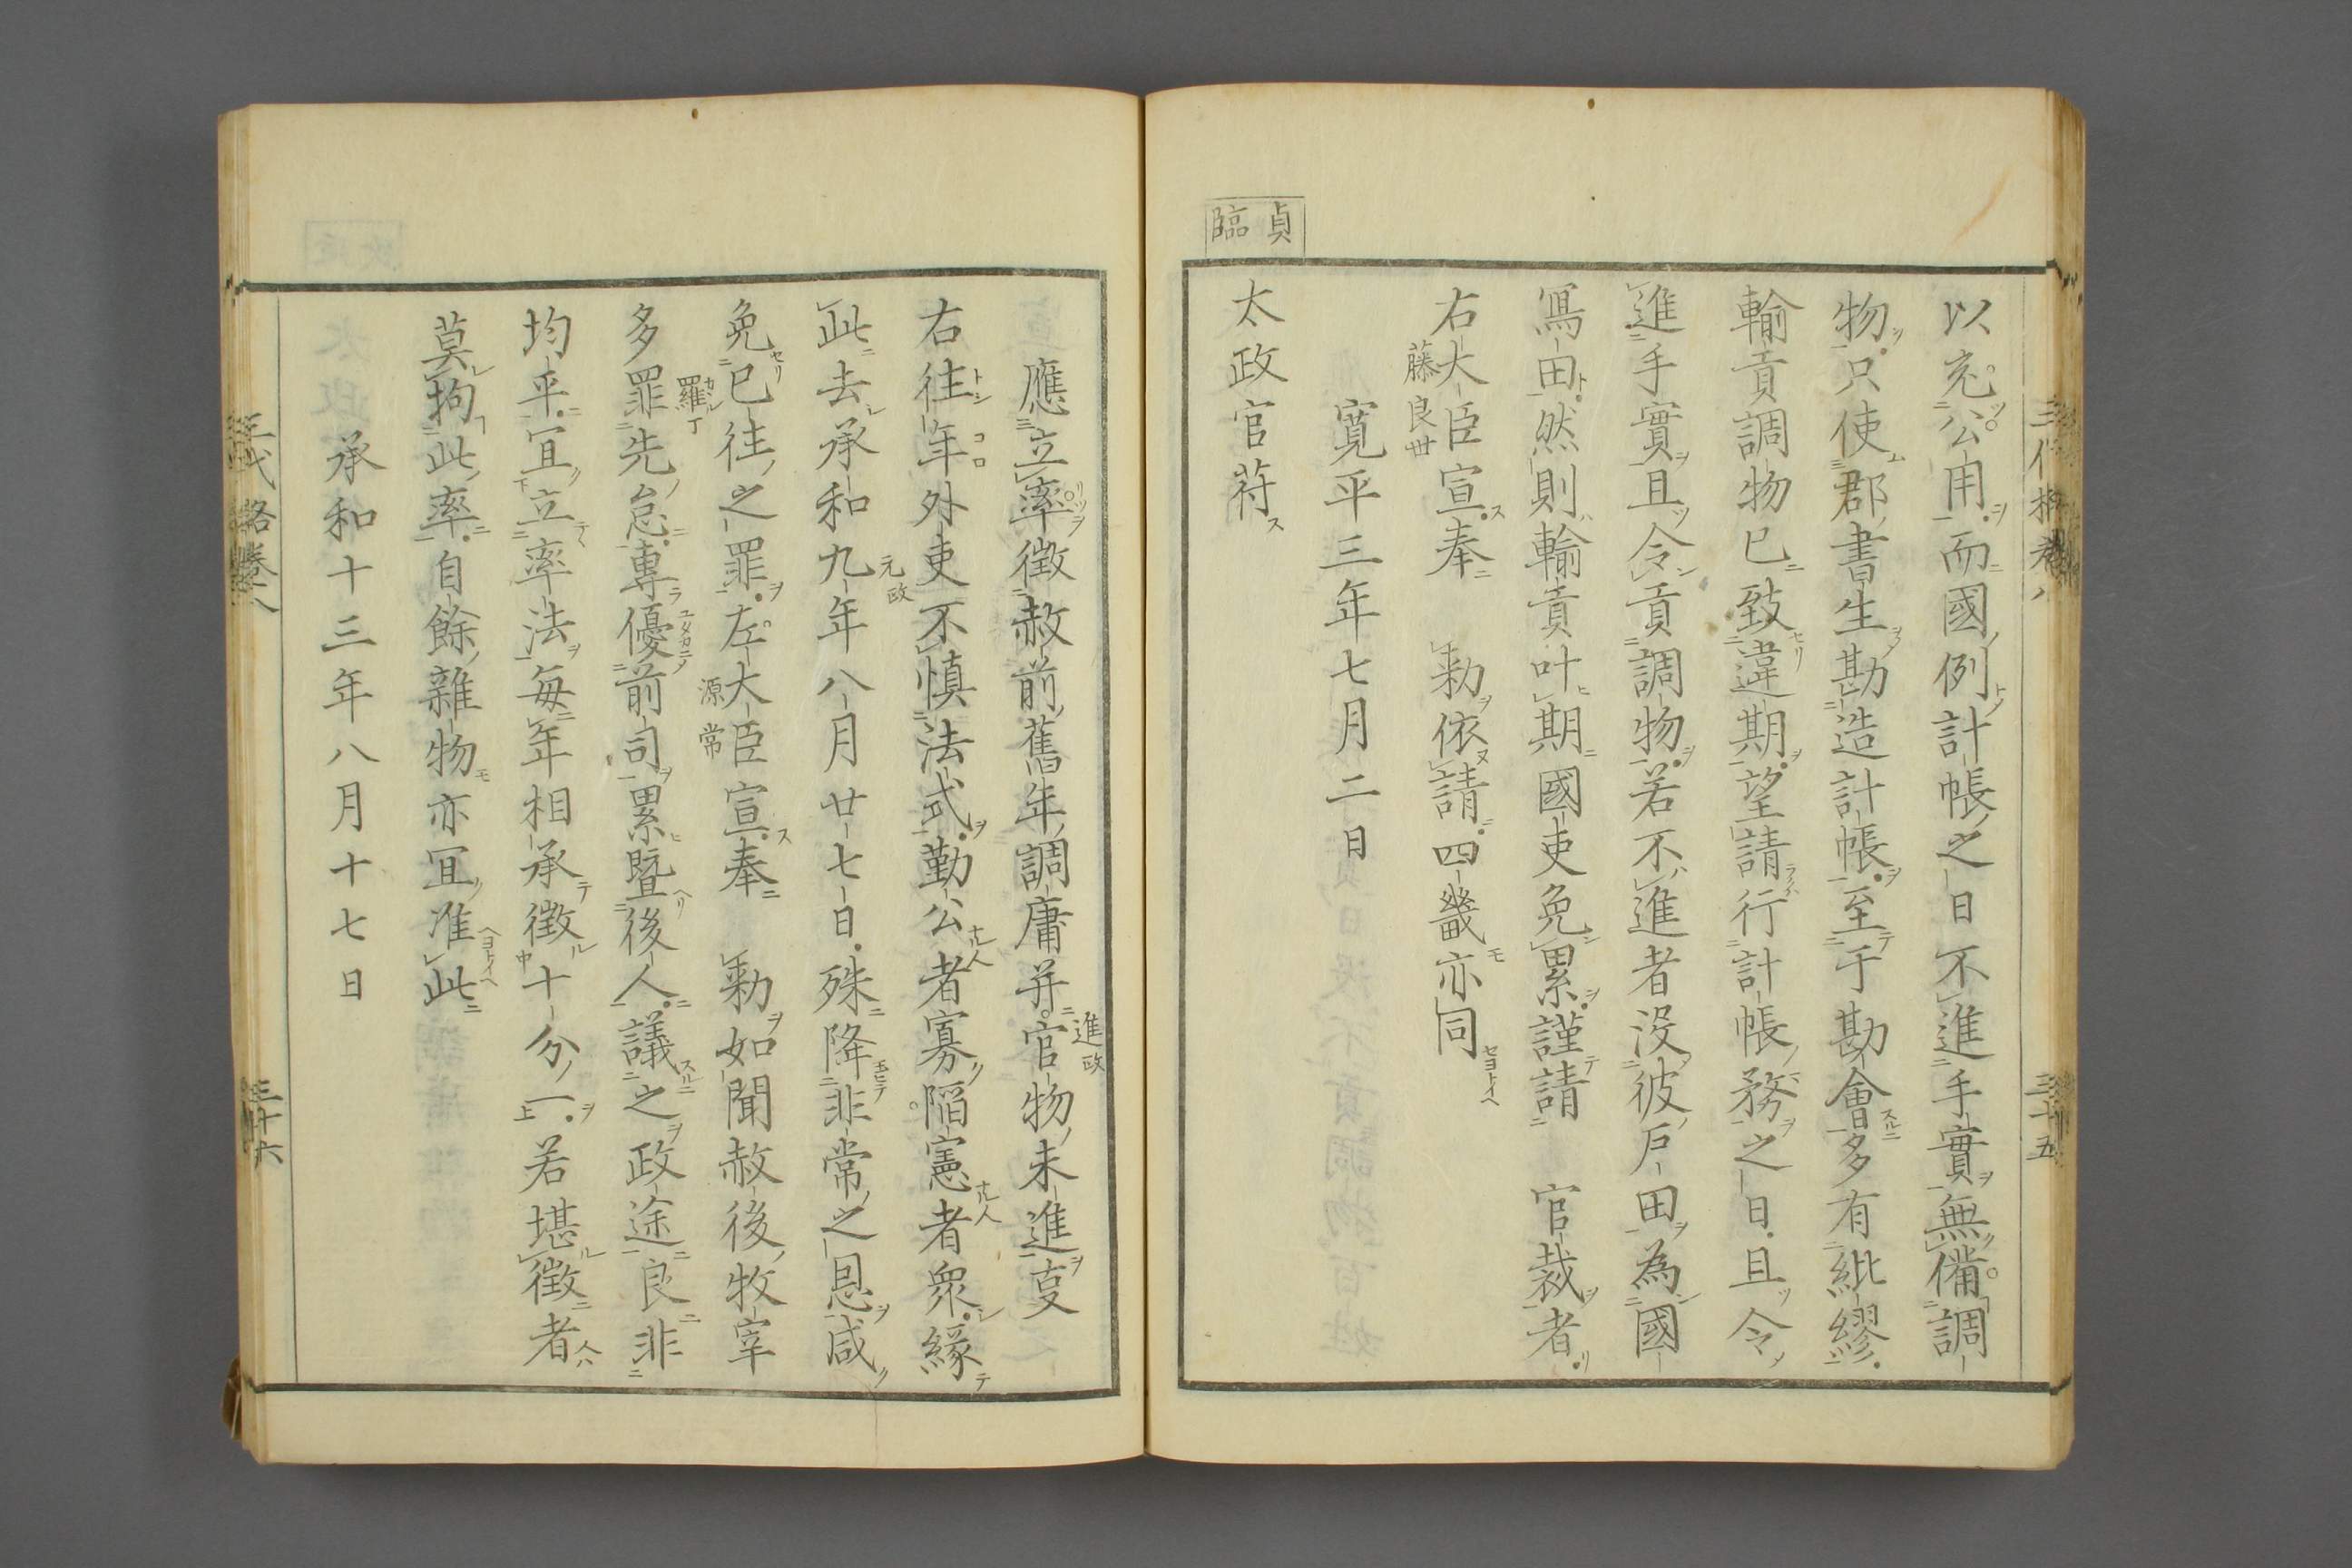 貞臨
以充公用而國例計帳之日不進手實無備調
物只使郡書生勘造計帳至于勘會多有紕繆
輸貢調物已致違期望請行計帳務之日且令
進手實且令貢調物若不進者没彼戸田為國
寫田然則輸貢叶期國吏免累謹請 官裁者
右大臣宣奉 勅依請四畿亦同
藤良世
寛平三年七月二日
太政官符
應立率徴赦前舊年調庸并官物未進㕝
進政
右往年外吏不慎法式勤公者寡陷憲者衆緣
此去承和九年八月廿七日殊降非常之恩咸
元政
免已往之罪左大臣宣奉 勅如聞赦後牧宰
源常
多罪先怠專優前司累曁後人議之政途良非
羅丁
均平宜立率法毎年相承徴十分一若堪徴者
莫拘此率自餘雜物亦冝准此
承和十三年八月十七日
三代格卷八
三十五
三十六